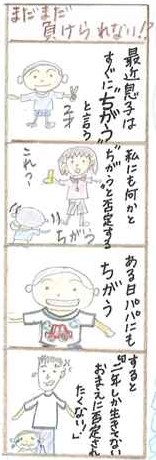 まだまだ
負けられない!?
最近息子は
すぐに"ちがう"
と言う
2才
私にも何かと
"ちがう"と否定する
これっ
ちがう
ある日パパにも
ちがう
すると
"二年しか生きてない
おまえに否定され
たくない!"